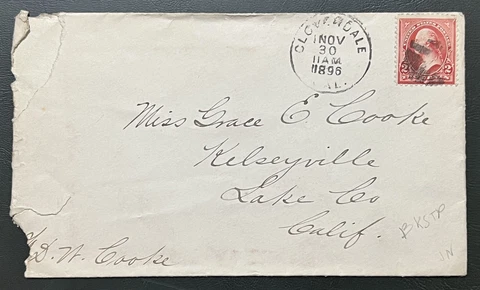 CLOVERDALE
NOV
30
11AM
1896
CAL.
2 2
Miss Grace E Cooke
Kelseyville
Lake Co
Calif.
D. W. Cooke
BKSTP
IN